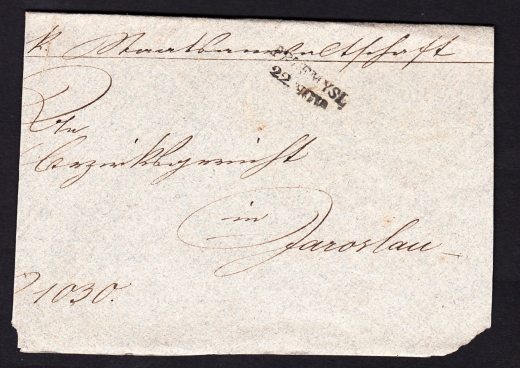 k. Staatsanwaltschaft
PRZEMYSL
22. NOV.
An
Bezirksgericht
in
Jaroslau
1030.